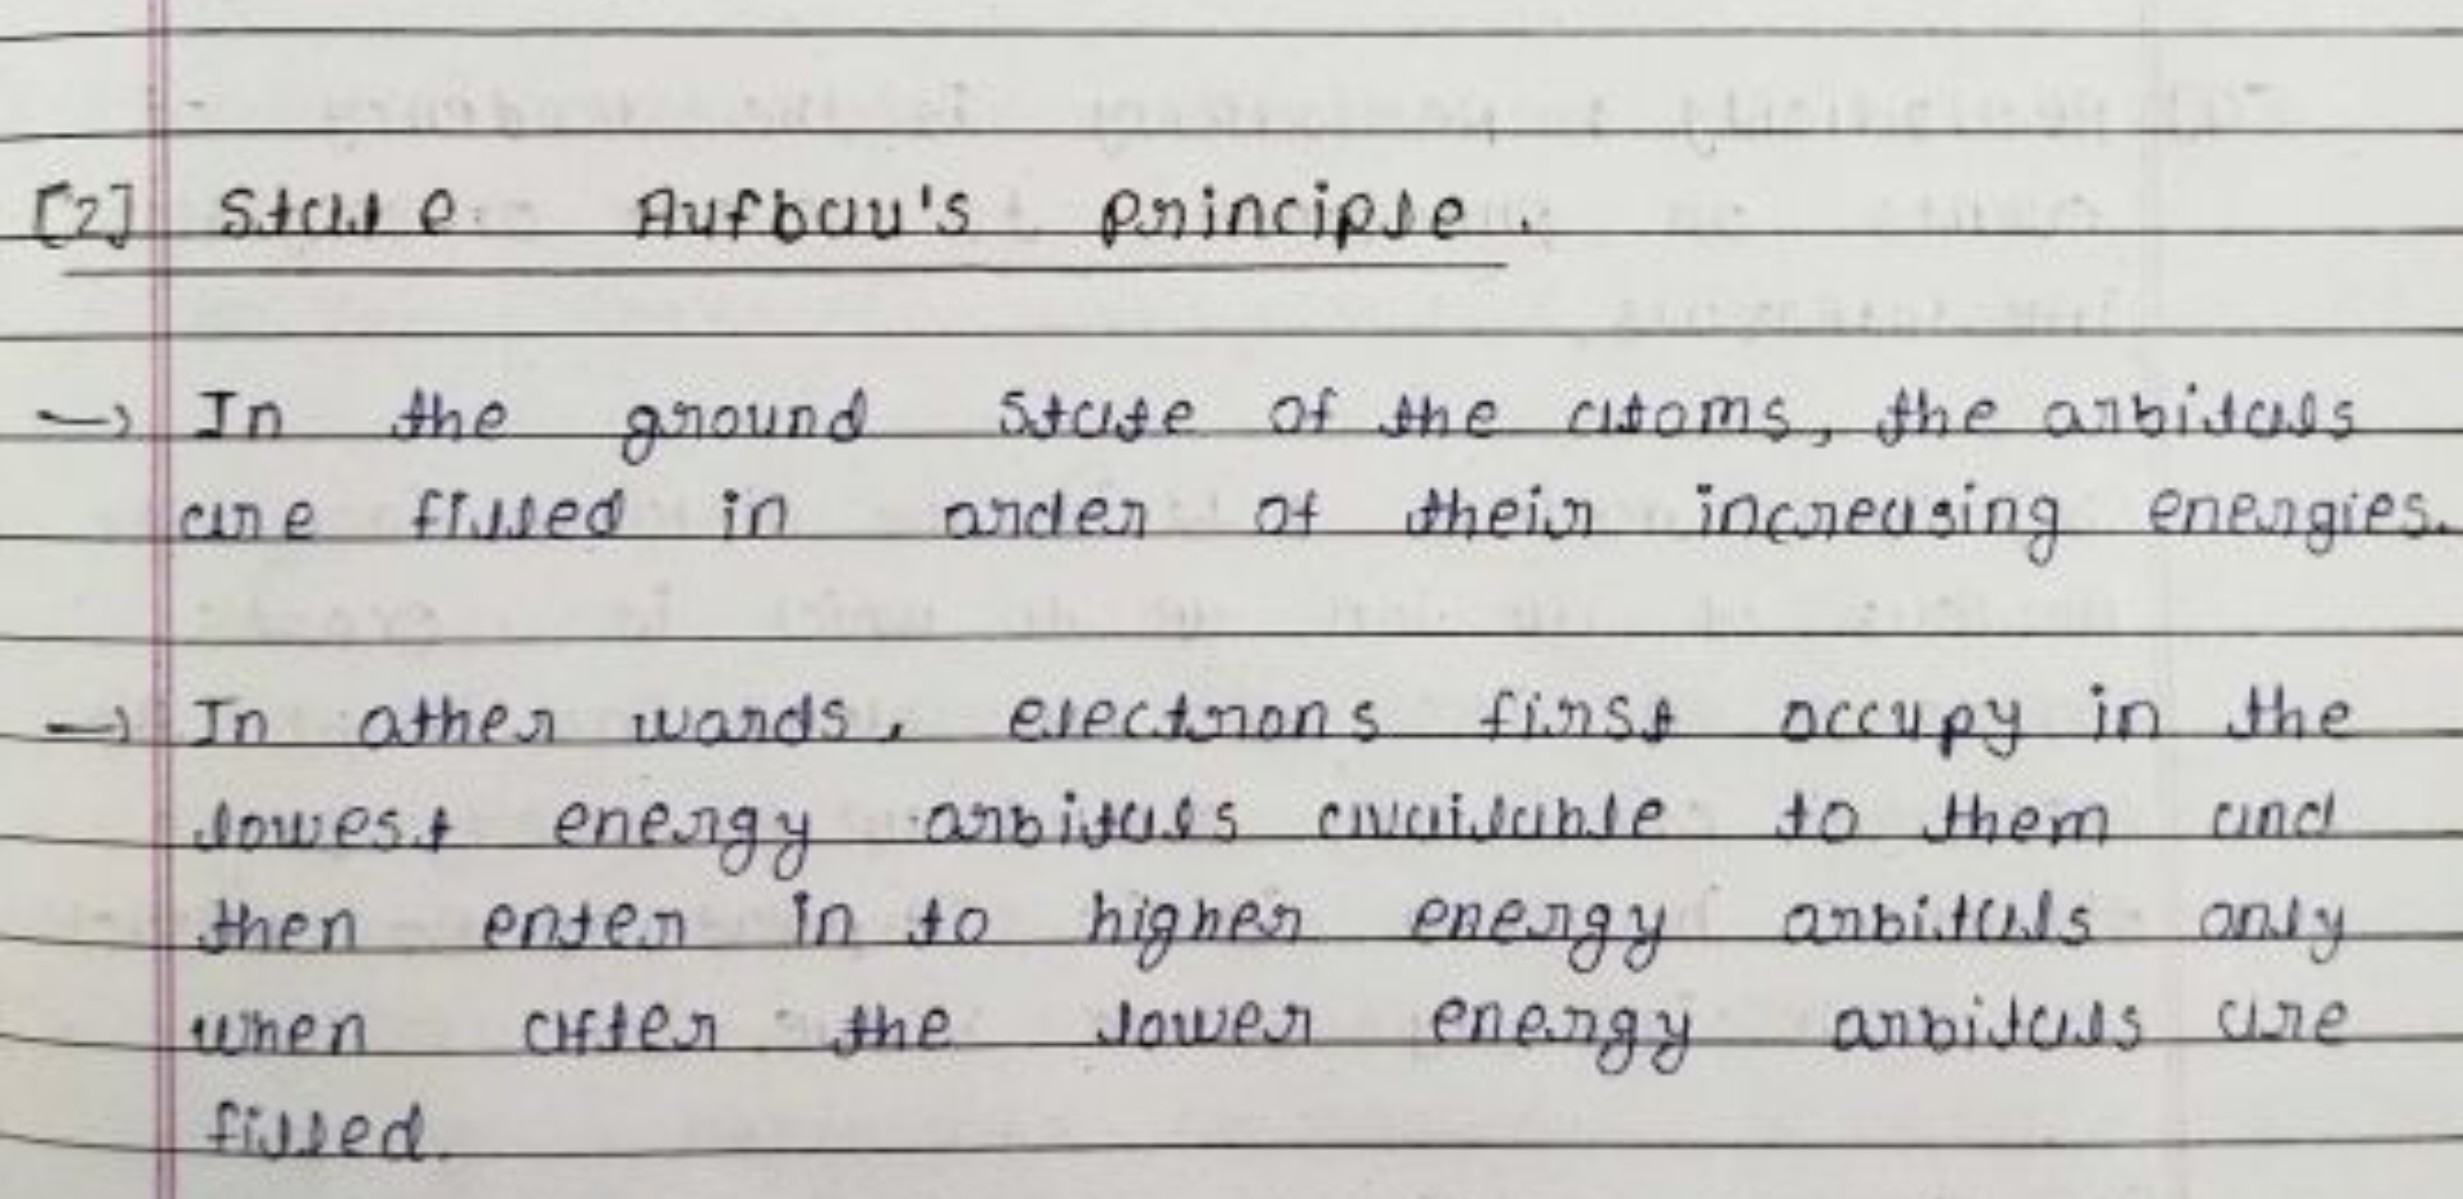 [2] State Aufbau's principle.
→ In the ground state of the atoms, the orbitals
are filled in order of their increasing energies.
→ In other words, electrons first occupy in the
lowest energy orbitals available to them and
then enter in to higher energy orbitals only
when after the lower energy orbitals are
filled.